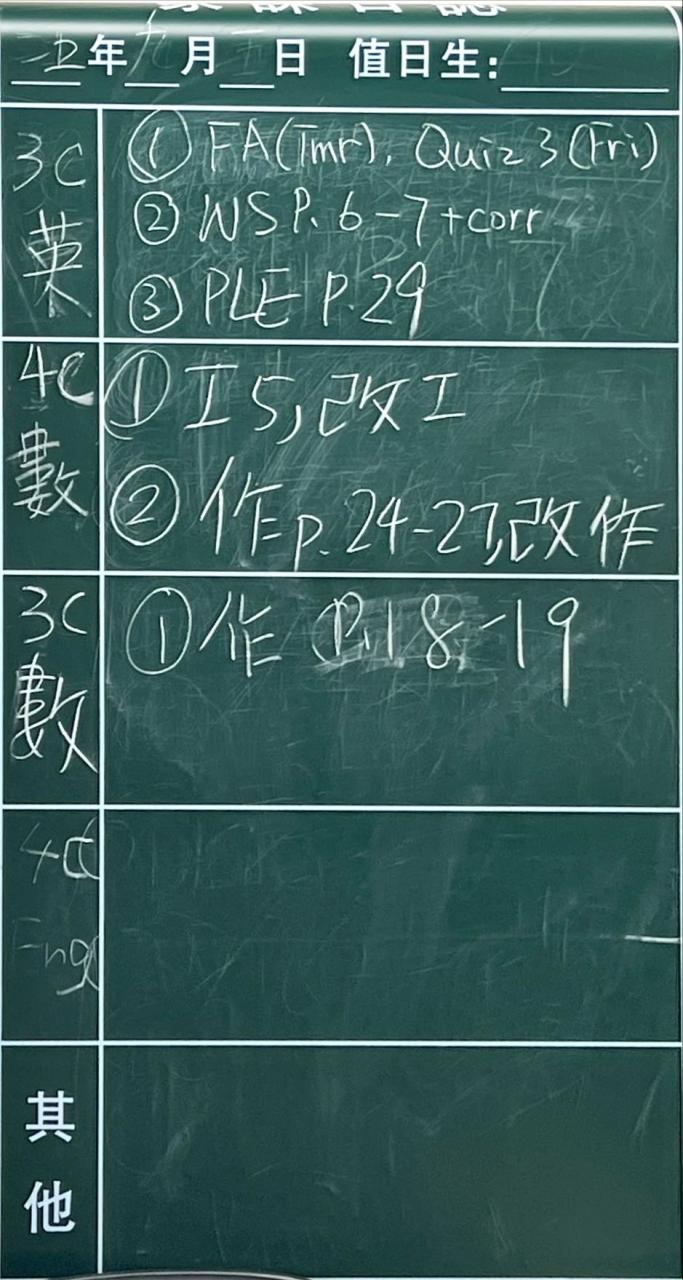 家課日誌
年九月 日 值日生:
3C
英
① FA(Tmr), Quiz 3 (Fri)
② WS P. 6-7 + corr
③ PLE P.29
4C
數
① 工5,改工
② 作p.24-27,改作
3C
數
① 作 P.18-19
4C
Eng
其
他